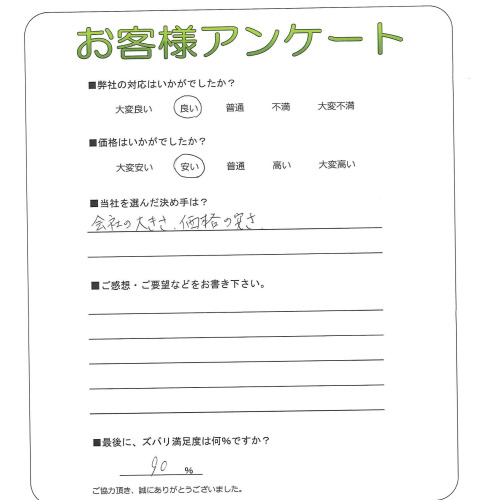 お客様アンケート
■弊社の対応はいかがでしたか?
大変良い 良い 普通 不満 大変不満
■価格はいかがでしたか?
大変安い 安い 普通 高い 大変高い
■当社を選んだ決め手は?
会社の大きさ、価格の安さ
■ご感想・ご要望などをお書き下さい。
■最後に、ズバリ満足度は何%ですか?
90 %
ご協力頂き、誠にありがとうございました。